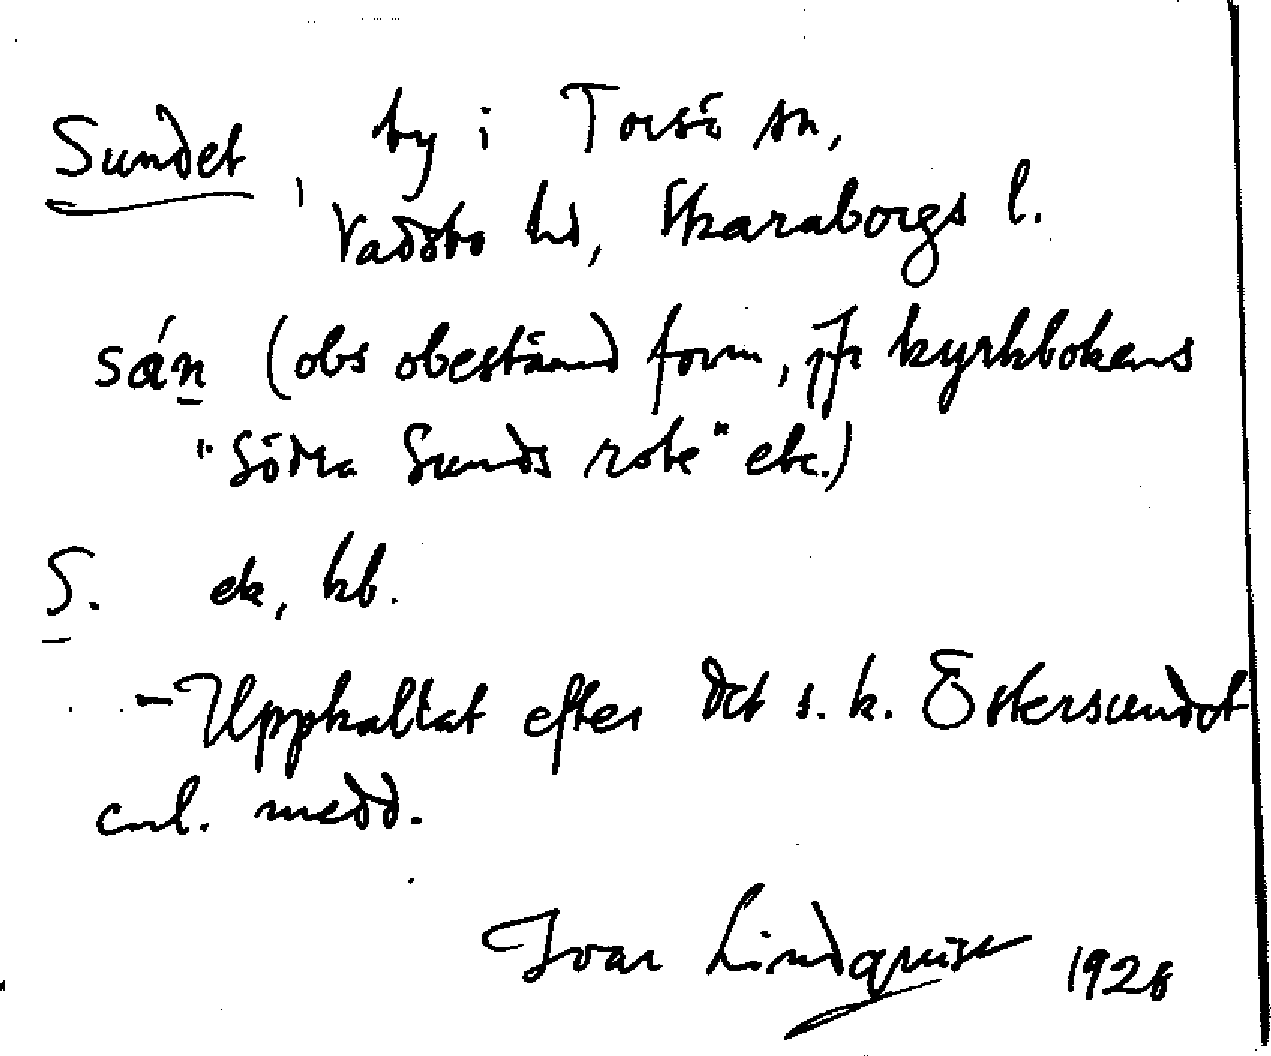 Sundet, by i Torsö sn,
Vadsbo hd, Skaraborgs l.
sán (obs obestämd form, jfr kyrkbokens
"Södra Sunds rote" etc.)
S. ek, kb.
- Uppkallat efter det s. k. Östersundet
enl. medd.
Ivar Lindquist 1928